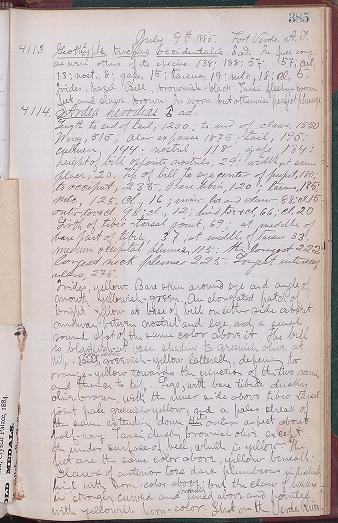 385
July 9th 1885. Fort Verde, A. T.
4113. Geothlypis trichas occidentalis ♂ ad. In full song,
as were others of its species. 138; 188; 57; 57; cul.
13; nost. 8; gape, 15; tarsus, 19; mtc, 18; cl, 5.
Irides hazel. Bill brownish-black. Tarsi fleshy-brown
feet and claws brown. In worn but otherwise perfect plumage
4114. Ardea herodias ♂ ad.
Length to end of tail, 1200; to end of claws, 1550
Wing, 515; alar expanse 1875; tail, 195;
culmen, 144; nostril, 118; gape, 184;
height of bill opposite nostrils, 24; width at same
place, 20; tip of bill to center of pupil, 180;
to occiput, 235. Bare tibia, 120; tarsus, 185
mtc, 125; cl, 16; inner toe and claw 88; cl, 15
outer toe+cl 98; cl, 12; hind toe+cl, 66; cl, 20
Girth of tibio-tarsal joint, 69; at middle of
bare part of tibia, 37; at middle of tarsus 33
medium occipital plumes, 115; the longest 220
longest neck plumes 225. Longest interscapulars, 275.
Irides, yellow. Bare skin around eye and angle of
mouth yellowish-green. An elongated patch of
bright yellow at base of bill on either side about
midway between nostril and eye, and a small
round spot of the same color above it. The bill
is blackish at base
tip. Bill, greenish-yellow laterally, deepening to
orange-yellow towards the junction of the two rami
and thence to tip. Legs, with bare tibia dusky
olive brown, with the inner side above tibio tarsal
joint pale greenish-yellow, and a pale streak of
the same extending down the outer aspect about
half-way. Tarsi dusky brownish olive except
the under surface of heel which is yellow. The
feet are the same color above, yellow beneath.
Claws of anterior toes dark plumbeous
with horn-color above; but the claw of hallux
is strongly curved and above and pointed
with yellowish horn-color. Shot on the Verde River,
Crystal Palace, 1884.
OLD MEDALS